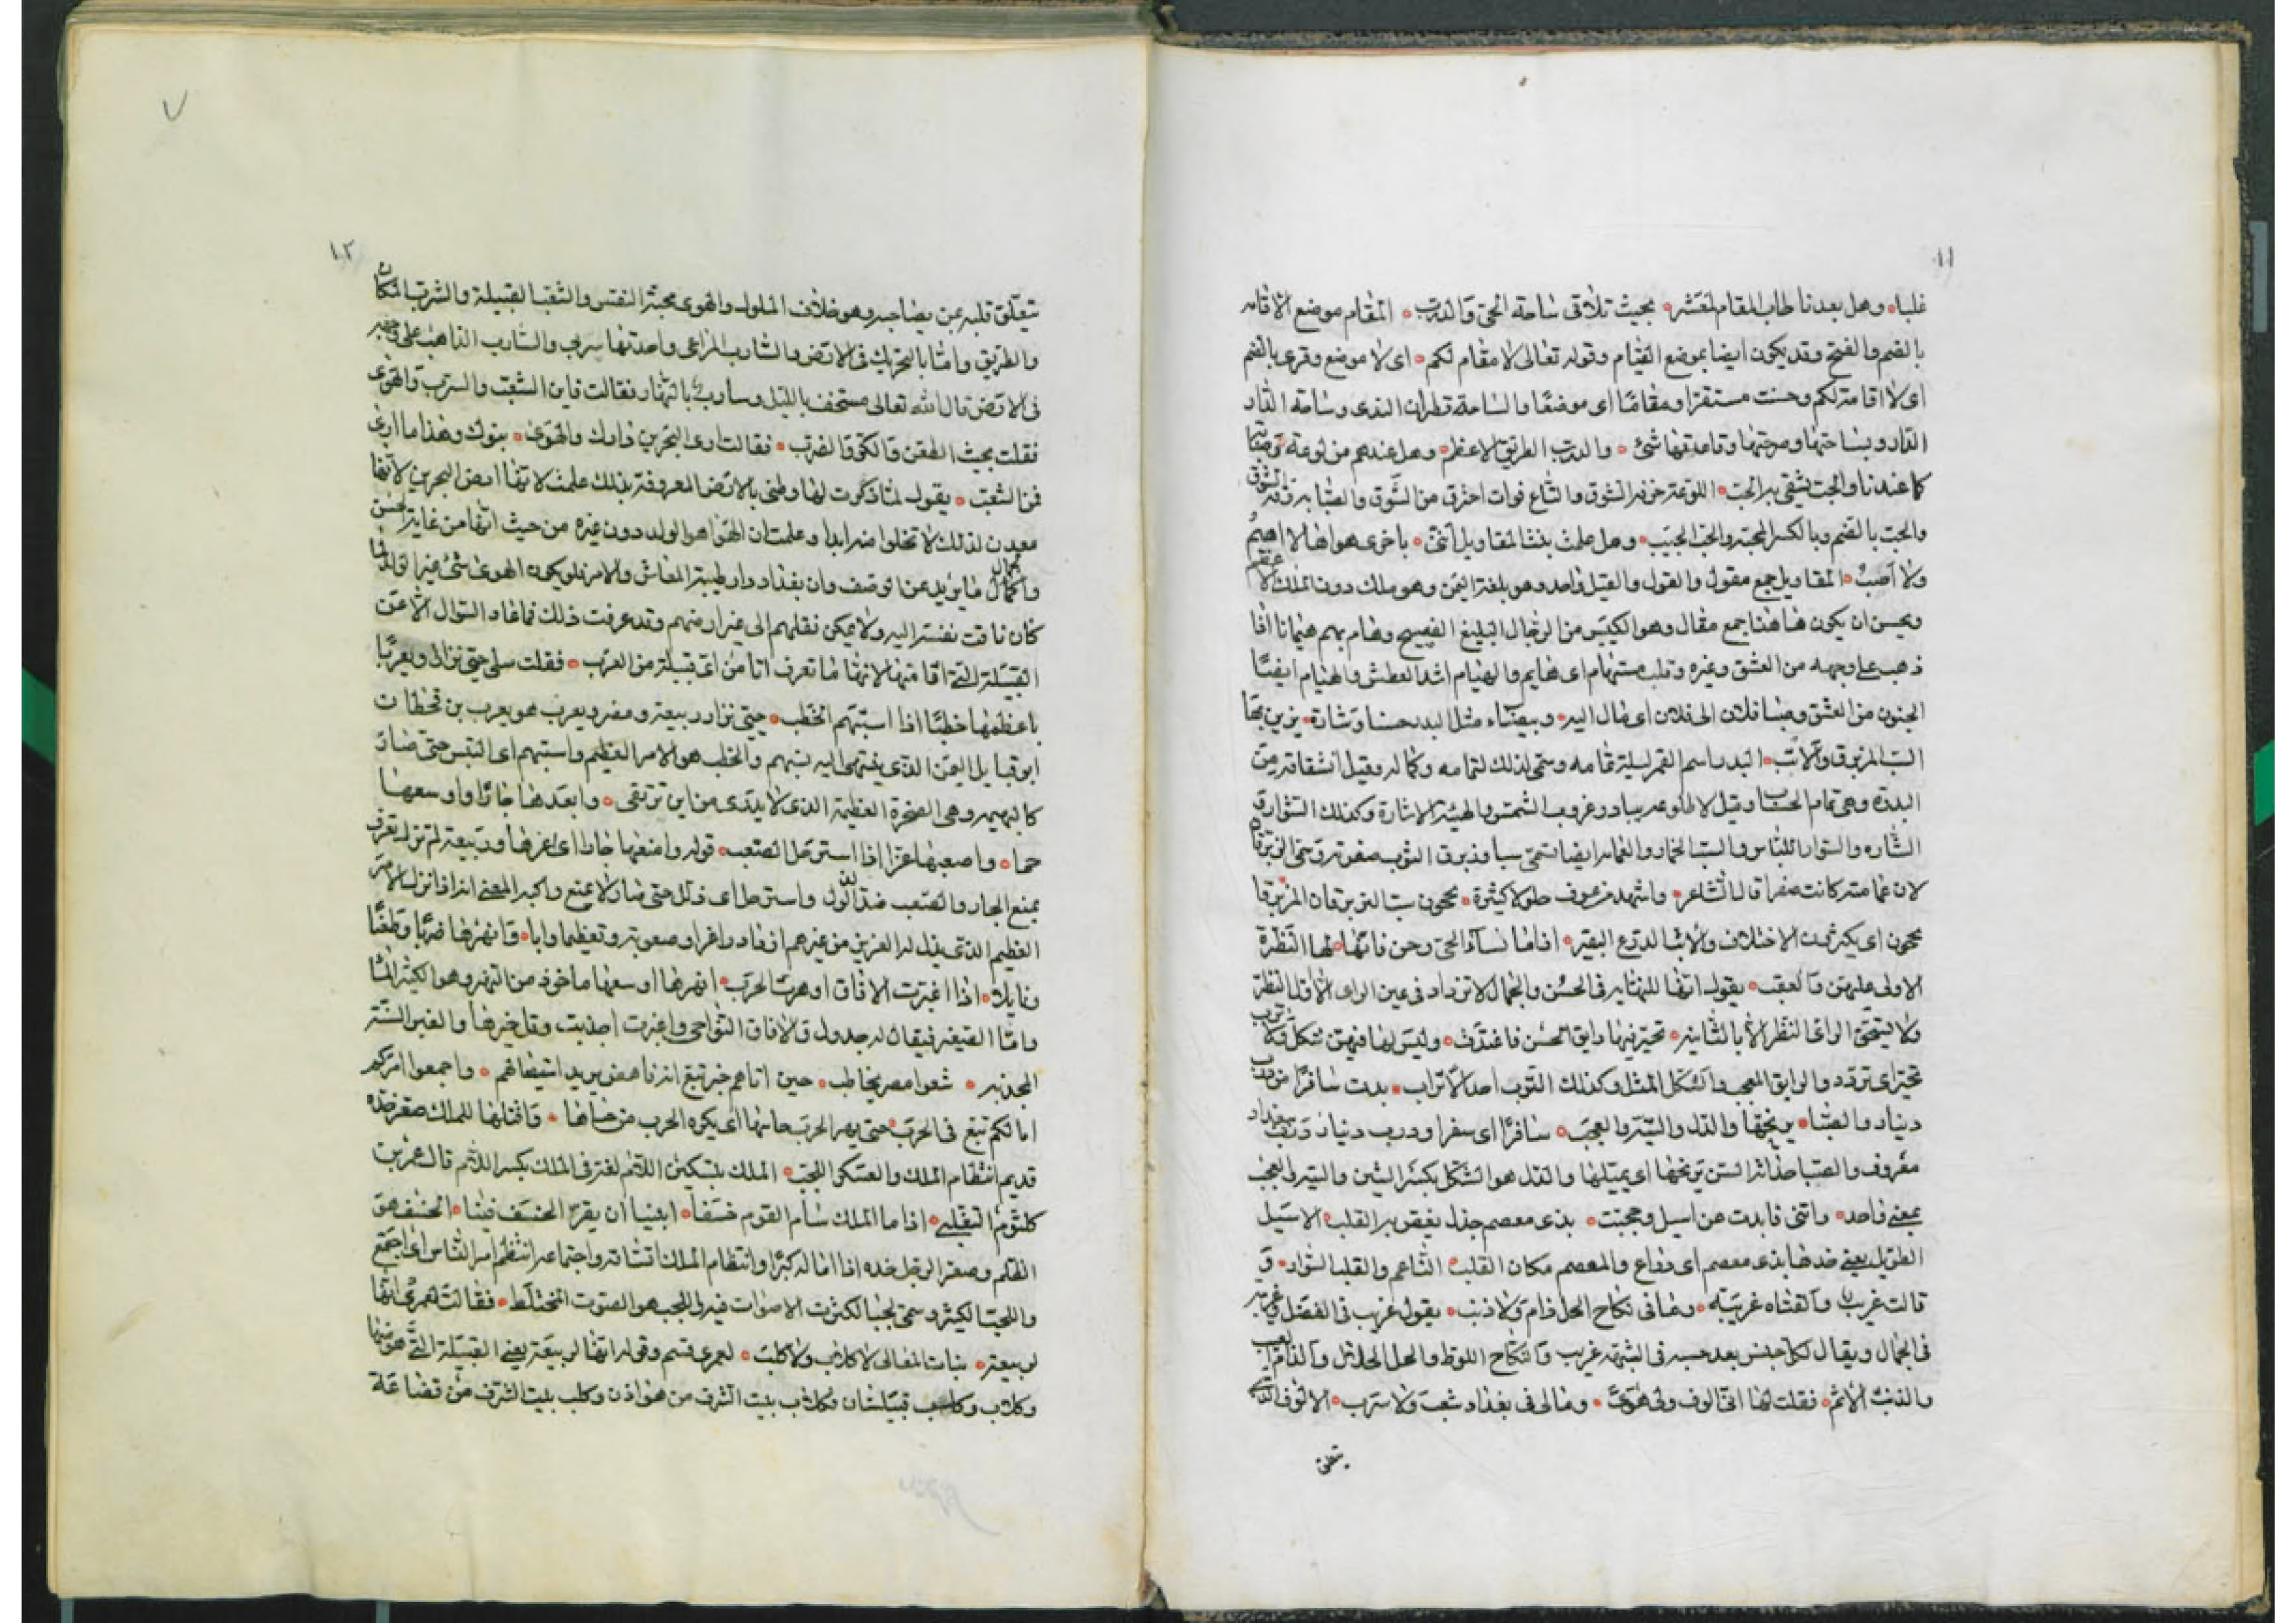 ١١
غلبا وهل بعدنا طاب المقام لمعشر بحيث تلاقى ساحة الحى والدرب المقام موضع الاقامه
بالضم والفتح وقد يكون ايضا بموضع القيام وقوله تعالى لا مقام لكم اى لا موضع وقرى بالضم
اى لا اقامة لكم وحسنت مستقرا ومقاما اى موضعا والساحة قطران الندى وساحة الدار
الدار وبساحتها وصرحتها وقاعدتها شئ والدرب الطريق الاعظم وهل عندهم من لوعة وصبابة
كما عندنا والحب يشقى به الحب اللوعة حرقة الشوق والتاع فوات احترق من الشوق والصبابة رقة الشوق
والحب بالضم وبالكسر المحبة والحب الحبيب وهل علمت بنت المقاويل اننى باخرى هواها لا اهيم
ولا اصب المقاويل جمع مقول والقول والقيل واحد وهو بلغة اليمن وهو ملك دون الملك الاعظم
ويحسن ان يكون هاهنا جمع مقال وهو الكيس من الرجال البليغ الفصيح وهام يهيم هيمانا اذا
ذهب على وجهه من العشق وغيره وقلب مستهام اى هايم والهيام اشد العطش والهيام ايضا
الجنون من العشق وصبا فلان الى فلان اى مال اليه وبيضاء مثل البدر حسنا وشارة يزين بها
السب المزبرق والاتب البدر اسم القمر ليلة تمامه وسمى لذلك لتمامه وكماله وقيل اشتقاقه من
البدرة وهى تمام الحساب وقيل لا طلوعه يبادر غروب الشمس والهيئة الاشارة وكذلك الشوار و
الشاره والشوار اللباس والسب الخمار والعمامة ايضا تسمى سبا وزبرق الثوب صفرته وسمى الزبرقان
لان عمامته كانت صفرا قال الشاعر واشهد من عوف حلولا كثيرة يحجون سب الزبرقان المزبرقا
يحجون اى يكثرون الاختلاف والاتب الدرع البقير اذا ما نساء الحى رحن فانها لها النظرة
الاولى عليهن والعقب يقول انها للنهاية فى الحسن والجمال لا تزداد فى عين الرائى الاول النظرة
ولا يستحق الرائى النظر الا بالثانية تحير فيها رايق الحسن فاغتدت وليس لها فيهن شكل ولا ترب
تحير اى تردد والرايق المعجب والشكل المثل وكذلك الترب احد الاتراب بدت سافرا من درب
دينار والصبا يرنحها والدل والتيه والعجب سافرا اى سفرا ودرب دينار درب ببغداد
معروف والصبا حداثة السن يرنحها اى يميلها والدل هو الشكل بكسر الشين والتيه والعجب
بمعنى واحد واثنى فابدت عن اسيل وحجبت بذى معصم جذل يغص به القلب الاسيل
الطويل يعنى خدها بذى معصم اى ذراع والمعصم مكان القلب الناعم والقلب السوار و
قالت غريب والفتاه غريبة وما فى نكاح الحل ذام ولا ذنب يقول غريب فى الفضل وغريبة
فى الجمال ويقال لكل جنس بعد حسبه فى الشبه غريب والنكاح اللوط والحل الحلال والذام العيب
والذنب الاثم فقلت لها انى الوف ولى هوى وما لى فى بغداد شعب ولا سرب الالوف الذى
يتعلق
٧
١٢
يتعلق قلبه عن يصاحبه وهو خلاف الملول والهوى محبة النفس والشعب القبيلة والسرب المكان
والطريق واما بالتحريك فى الارض والسارب المراعى واحدتها سربى والسارب الذاهب على وجهه
فى الارض قال الله تعالى مستخف بالليل وسارب بالنهار فقالت فاين الشعب والسرب والهوى
فقلت بحيث الطعن والكر والضرب فقالت ارى البحرين دارك والهوى بنوك وهذا ما ارى
فمن الشعب يقول لما ذكرت لها وطنى بالارض المعروفة بذلك علمت لانها ارض البحرين لانها
معدن لذلك لا تخلوا منه ابدا وعلمت ان الهوا هو الولد دون غيره من حيث انها من غاية الحسن
والكمال والجمال ما يزيد عن الوصف وان بغداد دار طيبة المعاش والامر فلو يكون الهوى شئ غير الولد لما
كان تاقت نفسه اليه ولا يمكن نقلهم الى غير ارضهم وقد عرفت ذلك فما عاد السؤال الا عن
القبيلة التى اقامتها لانها ما تعرف انا من اى قبيلة من العرب فقلت سلى حيى نزار ويعربا
باعظمها خطبا اذا استبهم الخطب حيى نزار ربيعة ومضر ويعرب هو يعرب بن قحطان
ابو قبايل اليمن الذى ينتهى اليه نسبهم والخطب هو الامر العظيم واستبهم اى التبس حتى صار
كالبهيمه وهى الصخرة العظيمة الذى لا يدرى من اين ترتقى وابعدها جارا واوسعها
حما واصعبها عزا اذا استرحل الصعب قوله وامنعها جارا اى اعزها وربيعة لم تزل تعرف
بمنع الجار والصعب ضد الذلول واسترحل اى ذلل حتى صار لا يمتنع واكبر المعنى انه اذا نزل الامر
العظيم الذى يذل له العزيز من غيرهم ازداد واعزا وصعوبة وتعظيما وابا وانهرها ضربا وطعنا
ونايلا اذا اغبرت الافاق او هرت الحرب انهرها اوسعها ماخوذ من النهر وهو الكثير الماء
واما الصغير فيقال له جدول والافاق النواحى واغبرت اجدبت وقل خيرها والغبر السنة
المجدبه شعرا مصر يخاطب حين اتاهم خبر تبع انه ناهض يريد استيصالهم واجمعوا امركم
امالكم تبع فى الحرب حتى يهر الحرب جانيها اى يكره الحرب من جناها واقتلها للملك صعر خده
قديم انتظام الملك والعسكر اللجب الملك بتسكين اللام لغة فى الملك بكسر اللام قال عمرو بن
كلثوم التغلبى اذا ما الملك سام القوم خسفا ابينا ان يقر الخسف فينا الخسف هو
الظلم وصعر الرجل خده اذا اماله كبرا وانتظام الملك اتساقه واجتماعه انتظم امر الناس اى اجتمع
واللجب الكثير وسمى لجبا لكثرت الاصوات فيه واللجب هو الصوت المختلط فقالت لعمرى انها
لربيعة بنات المعالى لا كلاب ولا كلب لعمرى قسم وقوله انها لربيعة يعنى القبيلة التى هو منها
وكلاب وكلب قبيلتان فكلاب بيت الشرف من هوازن وكلب بيت الشرف من قضاعة